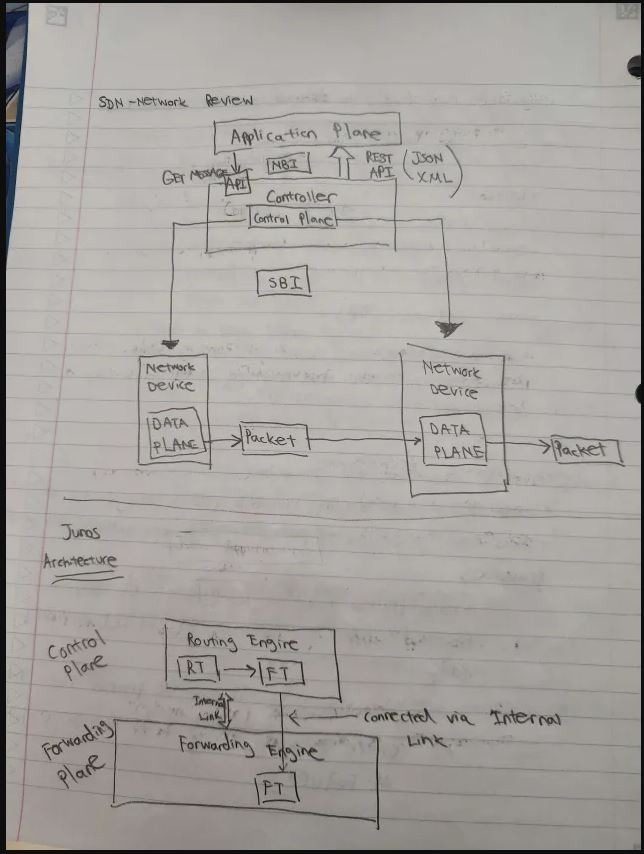 SDN-Network Review
Application Plane
GET MESSAGE
API
NBI
REST
API
(JSON
XML)
Controller
Control Plane
SBI
Network
Device
DATA
PLANE
Packet
Network
Device
DATA
PLANE
Packet
Junos
Architecture
Control
Plane
Routing Engine
RT
FT
Internal
Link
connected via Internal
Link
Forwarding
Plane
Forwarding Engine
FT